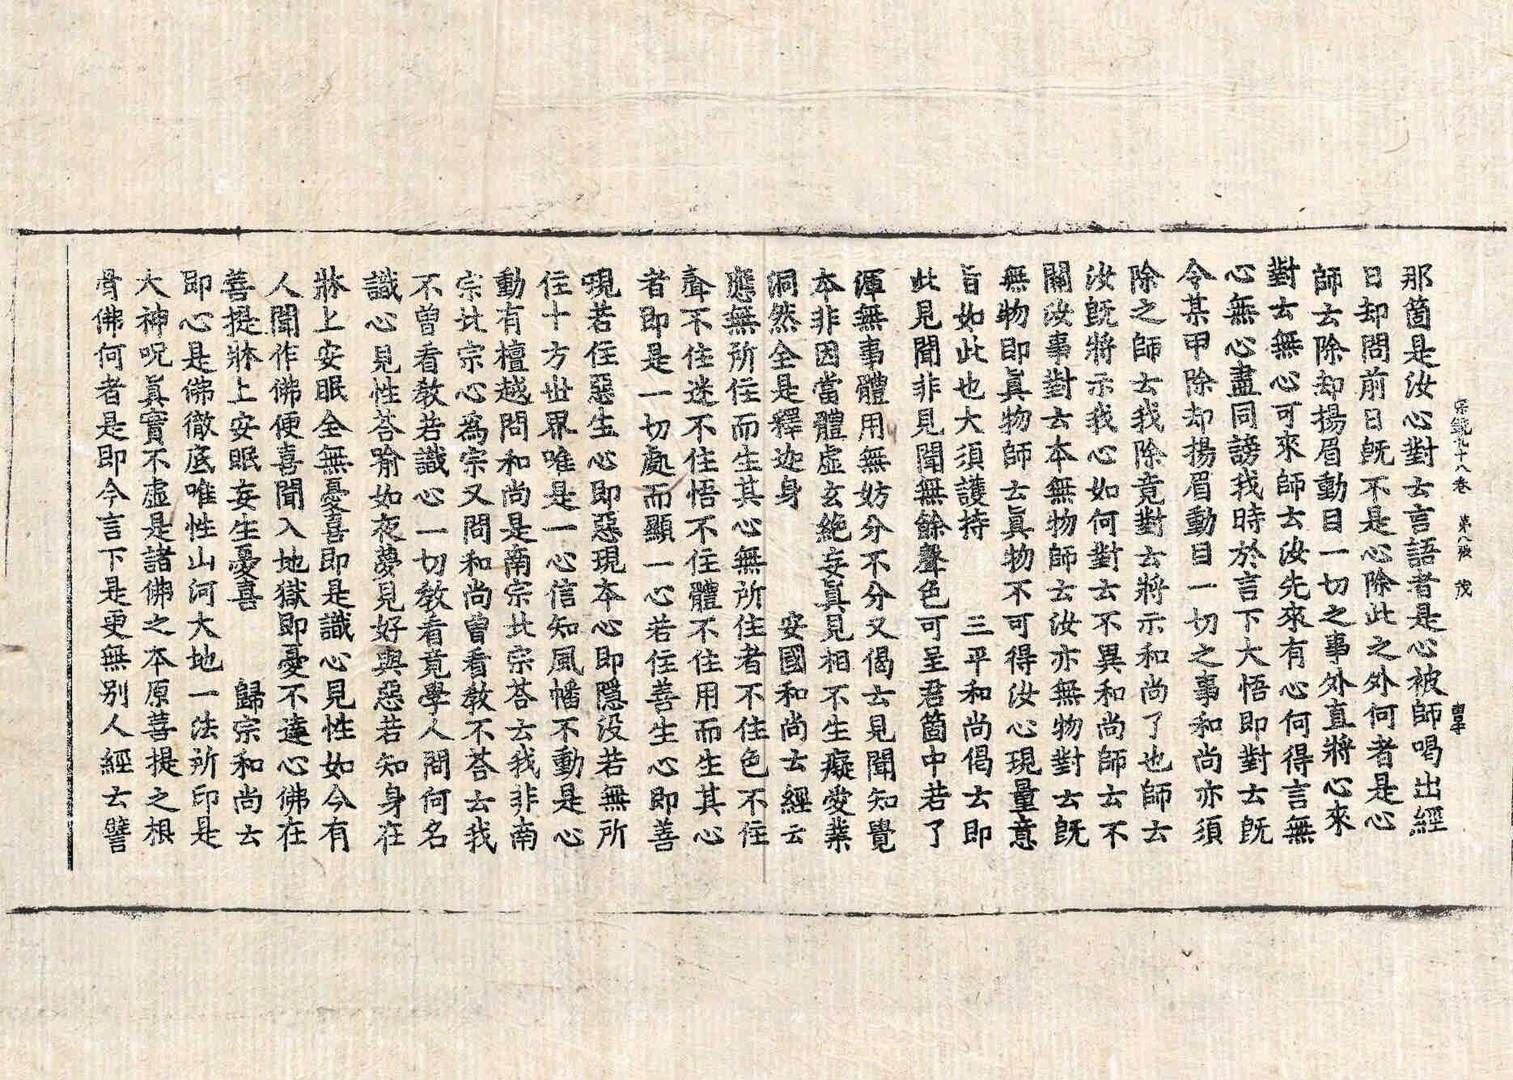 宗鏡九十八卷 第八張 茂
那箇是汝心對云言語者是心被師喝出經
日却問前日旣不是心除此之外何者是心
師云除却揚眉動目一切之事外直將心來
對云無心可來師云汝先來有心何得言無
心無心盡同謗我時於言下大悟即對云旣
令某甲除却揚眉動目一切之事和尚亦須
除之師云我除竟對云將示和尚了也師云
汝旣將示我心如何對云不異和尚師云不
關汝事對云本無物師云汝亦無物對云旣
無物即眞物師云眞物不可得汝心現量意
旨如此也大須護持 三平和尚偈云即
此見聞非見聞無餘聲色可呈君箇中若了
渾無事體用無妨分不分又偈云見聞知覺
本非因當體虛玄絶妄眞見相不生癡愛業
洞然全是釋迦身 安國和尚云經云
應無所住而生其心無所住者不住色不住
聲不住迷不住悟不住體不住用而生其心
者即是一切處而顯一心若住善生心即善
現若住惡生心即惡現本心即隱没若無所
住十方世界唯是一心信知風幡不動是心
動有檀越問和尚是南宗北宗荅云我非南
宗北宗心爲宗又問和尚曾看敎不荅云我
不曾看敎若識心一切敎看竟學人問何名
識心見性荅喻如夜夢見好與惡若知身在
牀上安眠全無憂喜即是識心見性如今有
人聞作佛便喜聞入地獄即憂不達心佛在
菩提牀上安眠妄生憂喜 歸宗和尚云
即心是佛徹底唯性山河大地一法所印是
大神呪眞實不虛是諸佛之本原菩提之根
骨佛何者是即今言下是更無別人經云譬